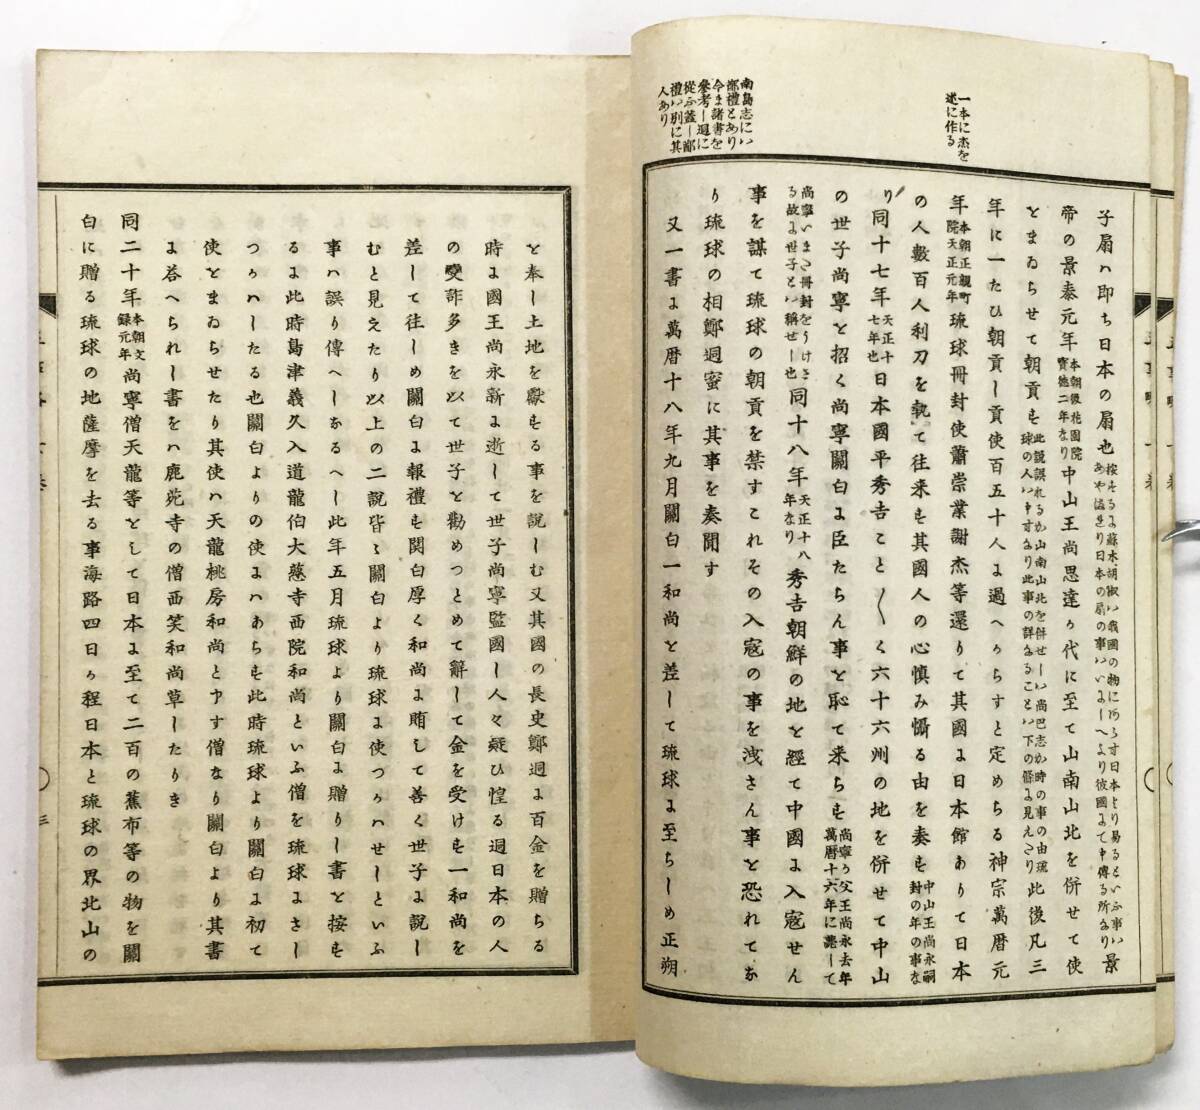 一本に杰を
述に作る
南島志にハ
鄭禮とあり
今ま諸書を
參考し迵に
從ふ蓋し鄭
禮ハ別に其
人あり
子扇ハ即ち日本の扇也
按するよ蘇木胡椒ハ我國の物に何らす日本より易るといふ事ハ
あや満れり日本の扇の事ハいにしへより彼國よて申傳る所なり
景
帝の景泰元年
本朝後花園院
寶徳二年なり
中山王尚思達ヶ代に至て山南山北を併せて使
とまゐらせて朝貢す
此説誤れるか山南山北を併せしハ尚巴志か時の事の由琉
球の人ハ申すなり此事の詳なることハ下の條よ見えたり
此後凡三
年に一たひ朝貢し貢使百五十人よ過へからすと定めらる神宗萬暦元
年
本朝正親町
院天正元年
琉球冊封使蕭崇業謝杰等還りて其國よ日本館ありて日本
の人數百人利刀を執て往来す其國人の心慎み懾る由を奏す
中山王尚永嗣
封の年の事な
り
同十七年
天正十
七年也
日本國平秀𠮷こと〱く六十六州の地を併せて中山
の世子尚寧と招く尚寧關白よ臣たらん事を恥て来らす
尚寧ヶ父王尚永去年
萬暦十六年に薨して
尚寧いまた冊封をうけさ
る故よ世子とハ稱せし也
同十八年
天正十八
年なり
秀𠮷朝鮮の地を經て中國よ入寇せん
事を謀て琉球の朝貢を禁すこれその入寇の事を洩さん事と恐れてな
り琉球の相鄭迵蜜に其事を奏聞す
又一書よ萬暦十八年九月關白一和尚と差して琉球よ至らしめ正朔
と奉し土地を獻する事を説しむ又其國の長史鄭迵よ百金を贈らる
時よ國王尚永新よ逝して世子尚寧監國し人々疑ひ惶る迵日本の人
の變詐多きを以て世子と勸めつとめて辭して金を受けす一和尚を
差して往しめ關白よ報禮す関白厚く和尚よ賄して善く世子よ説し
むと見えたり以上の二説皆〻關白より琉球よ使つかハせしといふ
事ハ誤り傳へしなるへし此年五月琉球より關白よ贈りし書と按す
るよ此時島津義久入道龍伯大慈寺西院和尚といふ僧を琉球よさし
つかハしたる也關白よりの使よハあらす此時琉球より關白よ初て
使とまゐらせたり其使ハ天龍桃房和尚と申す僧なり關白より其書
よ荅へられし書をハ鹿苑寺の僧西笑和尚草したりき
同二十年
本朝文
録元年
尚寧僧天龍等として日本よ至て二百の蕉布等の物を關
白に贈る琉球の地薩摩を去る事海路四日ヶ程日本と琉球の界北山の
三